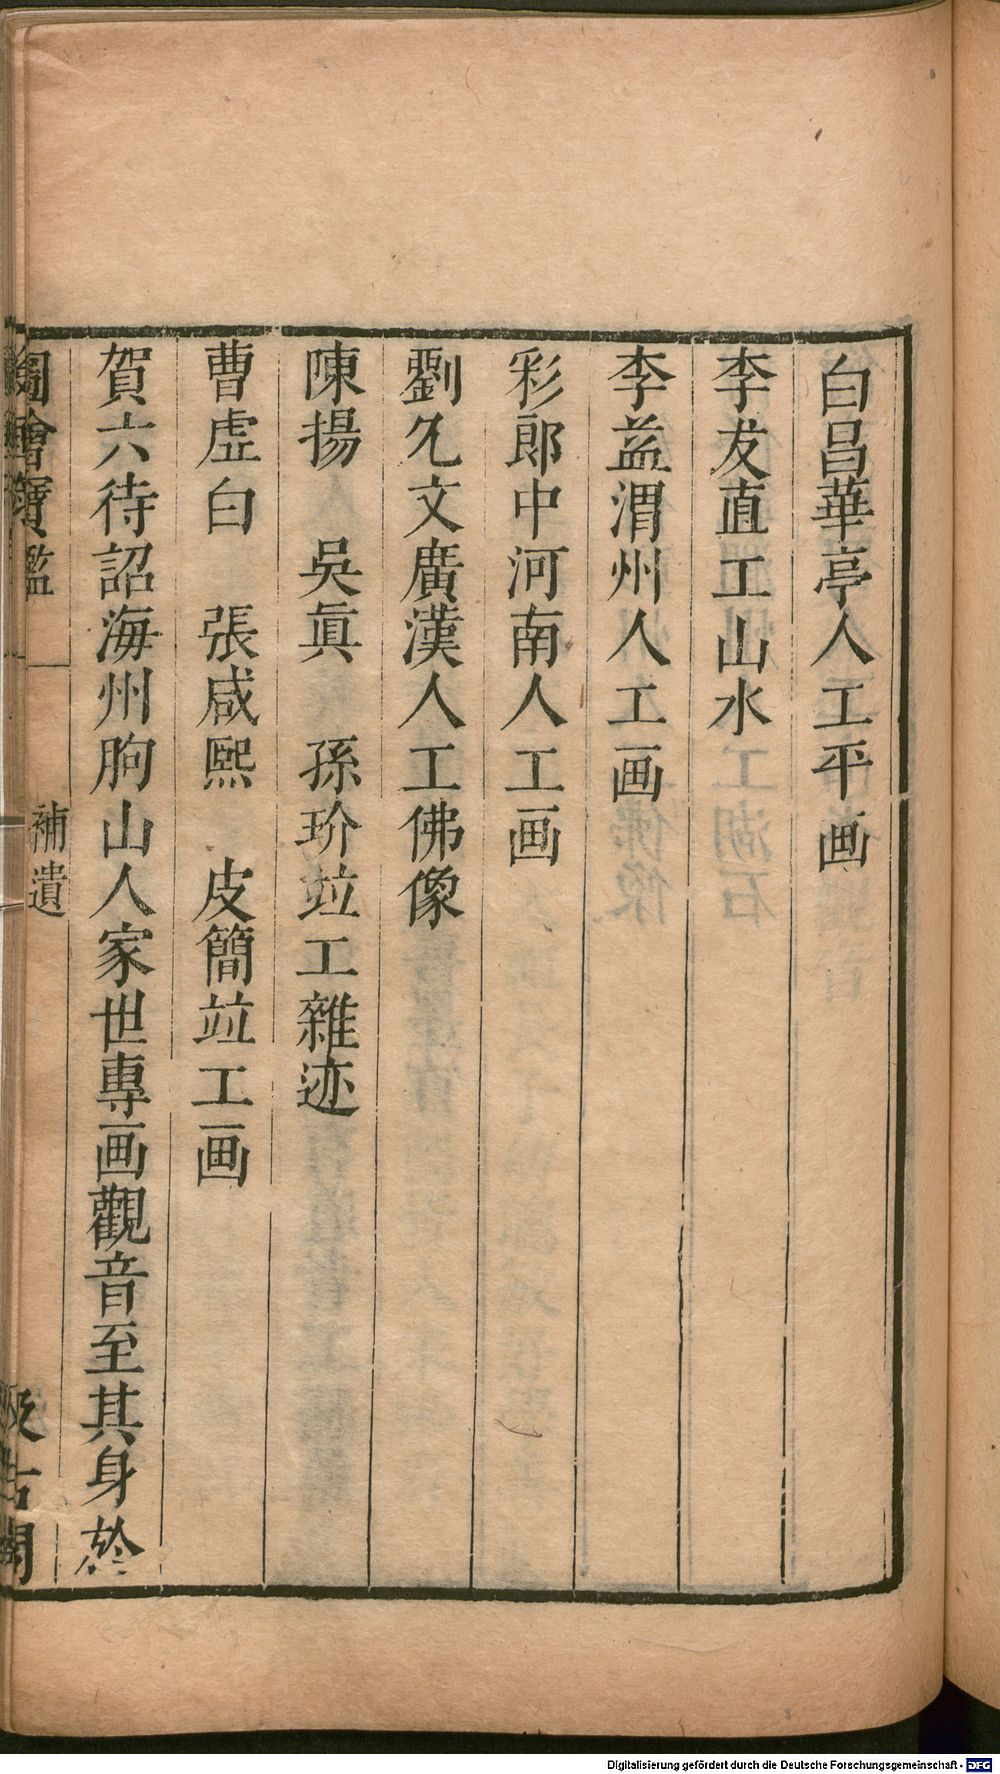 白昌華亭人工平画
李友直工山水
李益渭州人工画
彩郎中河南人工画
劉允文廣漢人工佛像
陳揚　吳眞　孫玠竝工雜迹
曹虛白　張咸熙　皮簡竝工画
賀六待詔海州朐山人家世專画觀音至其身於
圖繪寶鑑　補遺　汲古閣
Digitalisierung gefördert durch die Deutsche Forschungsgemeinschaft - DFG